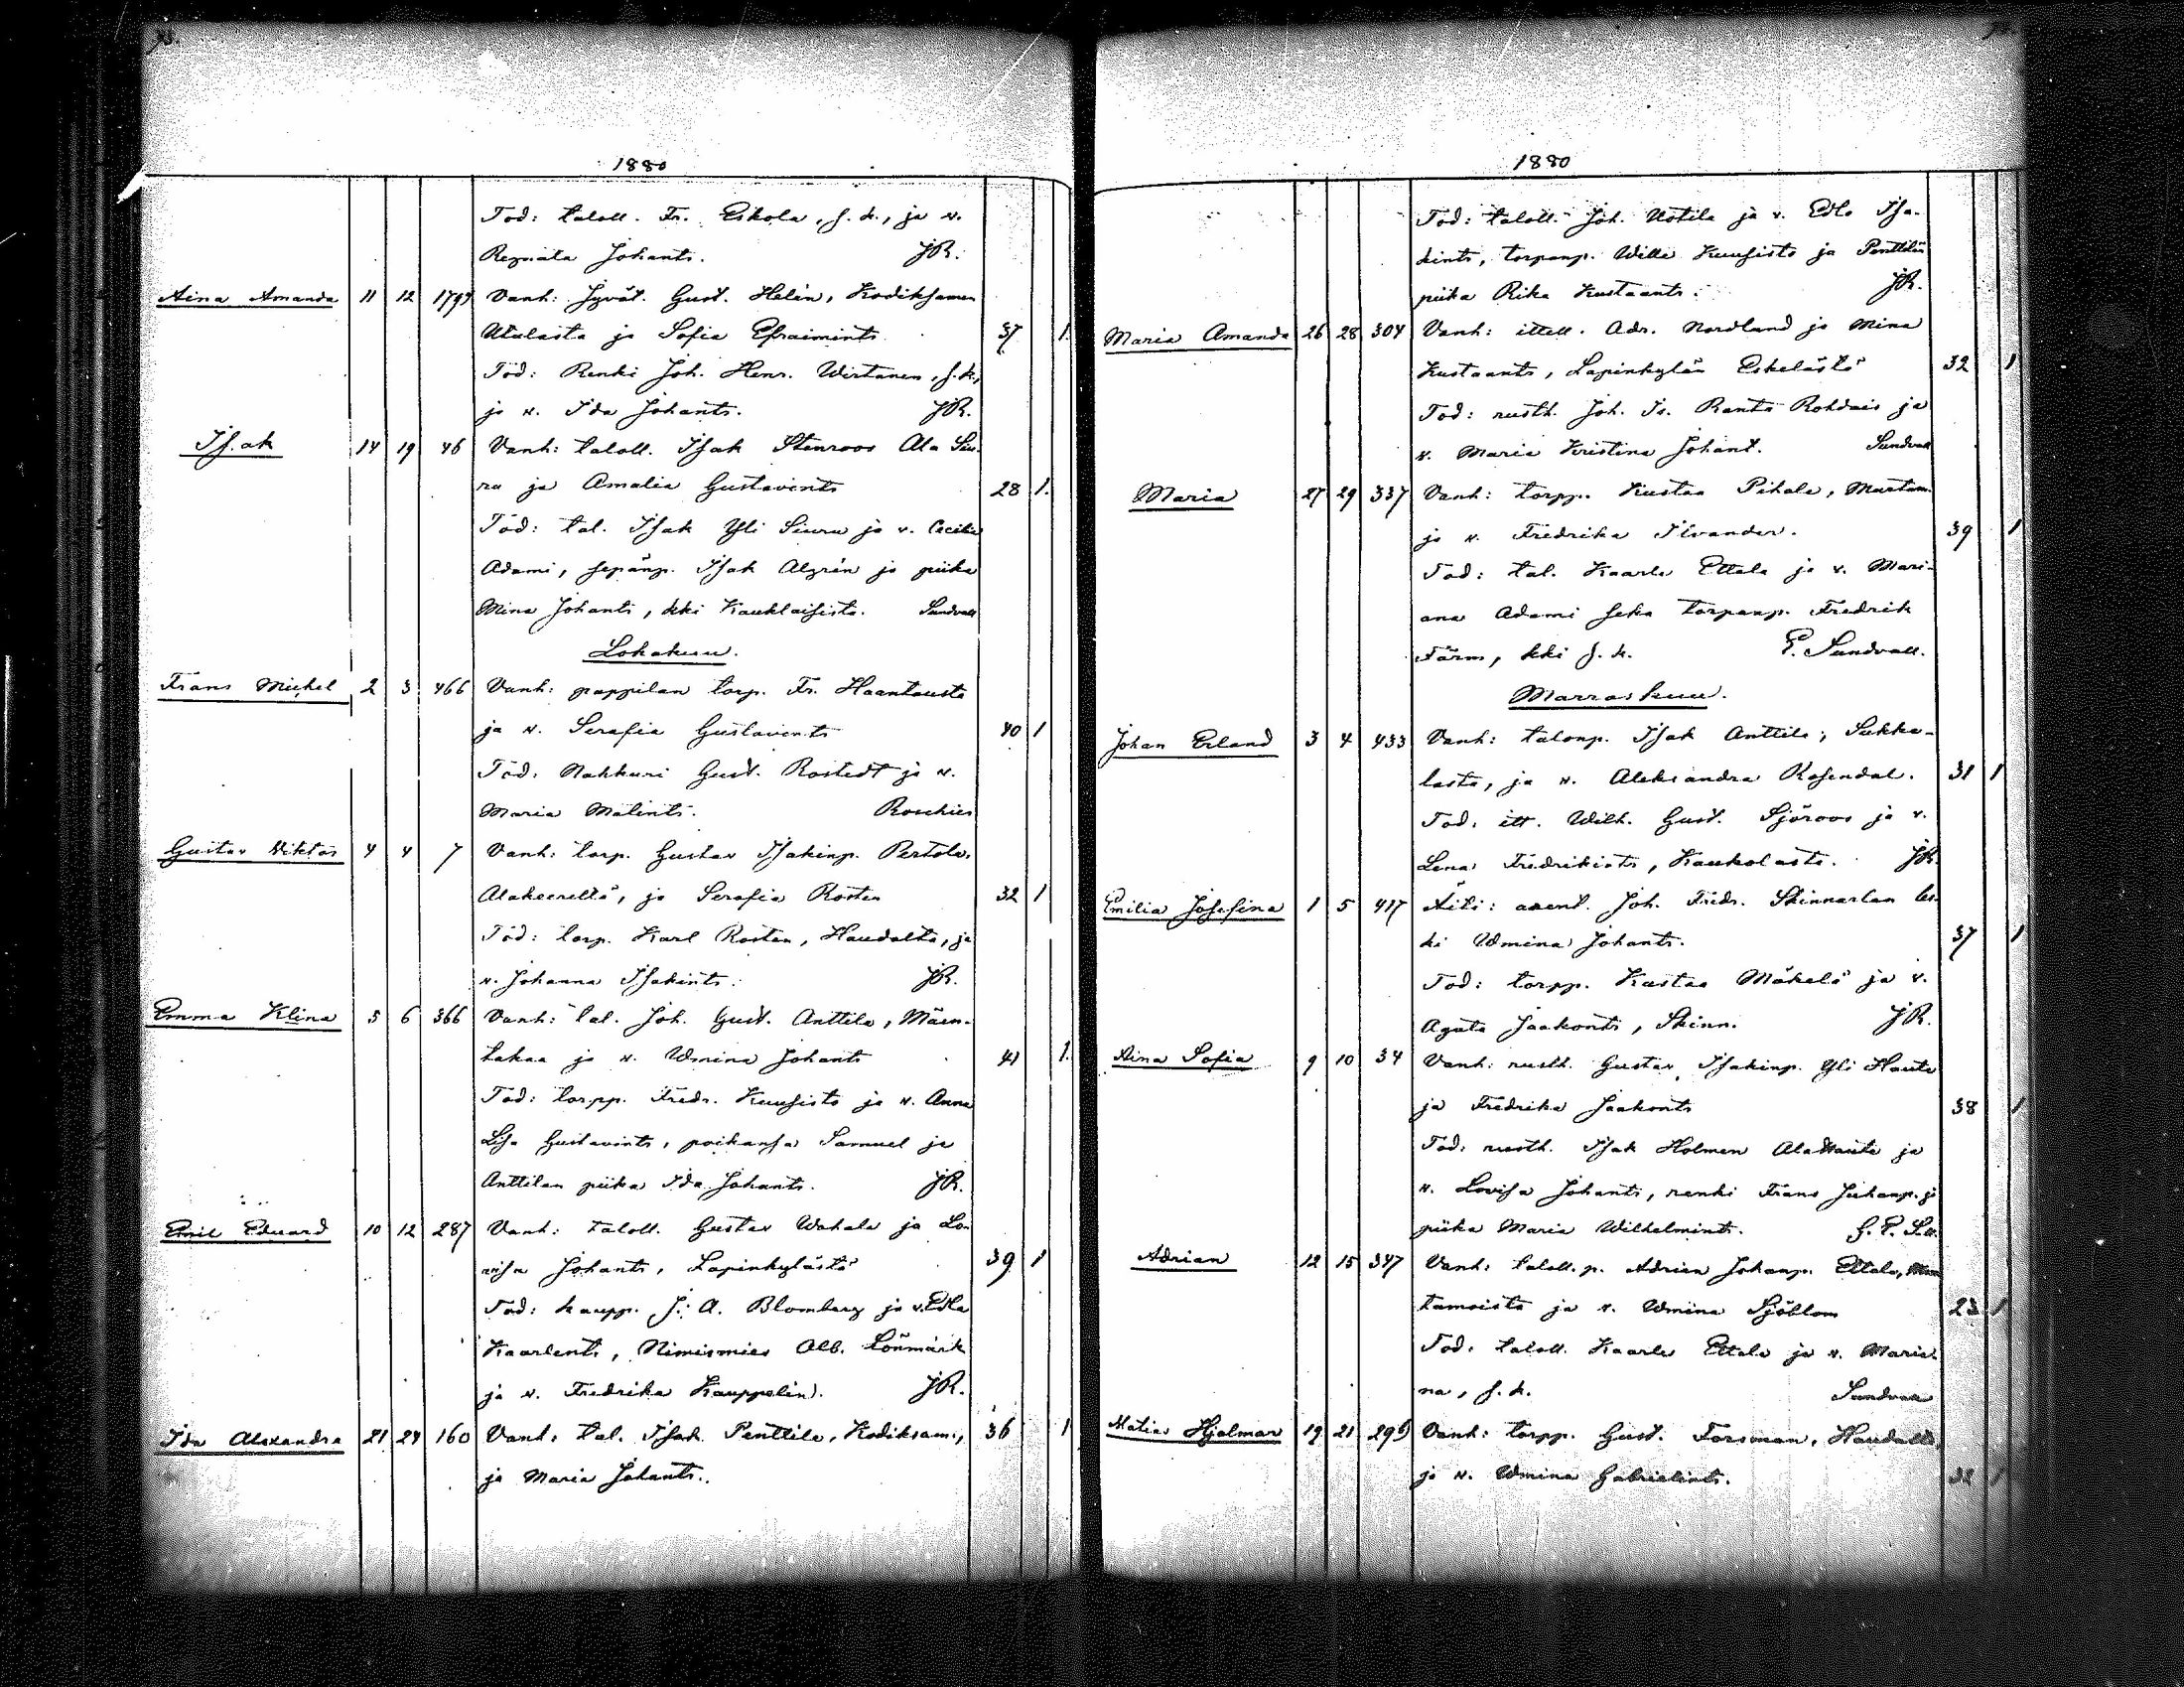 1880
Tod: taloll. Fr. Eskola, s. k., ja v.
Regnala Johants. JR.
Aina Amanda 11 12 179 Vanh: Jyvät. Gust. Helin, Kodiksamen
Atalasta ja Sofia Efraimints 37 1.
Tod: Renki Joh. Henr. Wirtanen, s. k.,
ja v. Ida Johants. JR.
Isak 14 19 46 Vanh: taloll. Isak Stenroos Ala Siu-
ru ja Amalia Gustavints 28 1.
Tod: tal. Isak Yli Siuru ja v. Cecilia
Adami, sepänp. Isak Algrén ja piika
Mina Johants, kki Kauklaisista. Sundvall
Lokakuu.
Frans Mickel 2 3 466 Vanh: pappilan torp. Fr. Haantausta
ja v. Serafia Gustavints 40 1
Tod. Nahkuri Gust. Rostedt ja v.
Maria Matints. Roschier
Gustav Viktor 4 4 7 Vanh: torp. Gustav Isakinp. Pertola,
Alakeereltä, ja Serafia Rosten 32 1
Tod: torp. Karl Rosten, Haudalta, ja
v. Johanna Isakints. JR.
Emma Elina 5 6 366 Vanh: tal. Joh. Gust. Anttila, Märn-
takaa ja v. Wmina Johants 41 1.
Tod: torpp. Fredr. Kuusisto ja v. Anna
Lisa Gustavints, poikansa Samuel ja
Anttilan piika Ida Johants. JR.
Emil Eduard 10 12 287 Vanh: taloll. Gustav Wahala ja Lo-
visa Johants, Lapinkylästä 39 1
Tod: kaupp. J. A. Blomberg ja v. Edla
Kaarlents, Nimismies Alb. Lönmark
ja v. Fredrika Kauppelin. JR.
Ida Alexandra 21 24 160 Vanh. tal. Isak Penttila, Kodiksami, 36 1
ja Maria Johants.
1880
Tod: taloll. Joh. Uotila ja v. Edla Isa-
kints, torpanp. Wille Kuusisto ja Penttilän
piika Rika Kustaants. JR.
Maria Amanda 26 28 304 Vanh: ittell. Adr. Nordlund ja Mina
Kustaants, Lapinkylän Eskelästä 32 1
Tod: rusth. Joh. Is. Ranta Rohdais ja
v. Maria Kristina Johant. Sundvall
Maria 27 29 337 Vanh: torpp. Kustaa Pihala, Martam.
ja v. Fredrika Ilvander. 39 1
Tod: tal. Kaarle Ettala ja v. Mari-
ana Adami seka torpanp. Fredrik
Färm, kki s. k. P. Sundvall.
Marraskuu.
Johan Erland 3 4 433 Vanh: talonp. Isak Anttila, Sukka-
lasta, ja v. Aleksandra Rosendal. 31 1
Tod. itt. Wilh. Gust. Sjöroos ja v.
Lena Fredrikints, Kaukolasta. JR.
Emilia Josefina 1 5 417 Äiti: arent. Joh. Fredr. Skinnarlan les-
ki Wmina Johants. 37 1
Tod: torpp. Kustaa Mäkelä ja v.
Agata Jaakonts, Skinn. JR.
Aina Sofia 9 10 34 Vanh: rusth. Gustav Isakinp. Yli Hauta
ja Fredrika Jaakonts 38 1
Tod: rusth. Isak Holmen Ala Hauta ja
v. Lovisa Johants, renki Frans Juhanp. ja
piika Maria Wilhelmints. G. P. S.ll.
Adrian 12 15 347 Vanh: taloll. p. Adrian Johanp. Ettala, Mar-
tamoista ja v. Wmina Sjöblom 23 1
Tod. taloll. Kaarle Ettala ja v. Maria-
na, s. k. Sundvall
Matias Hjalmar 19 21 296 Vanh: torpp. Gust. Forsman, Haudalta,
ja v. Wmina Gabrielints. 32 1